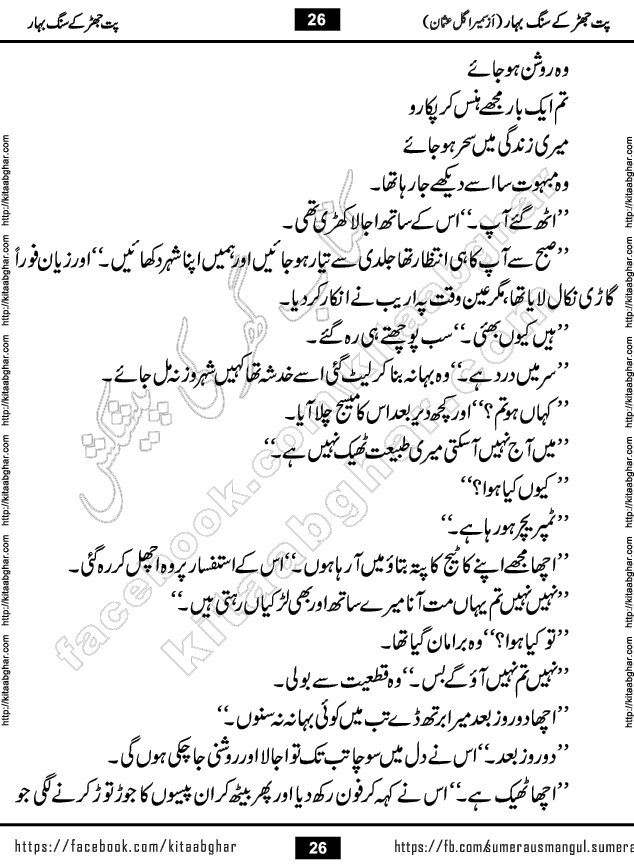 پت جھڑ کے سنگ بہار (از سمیرا گل عثمان) 26 پت جھڑ کے سنگ بہار
وہ روشن ہو جائے
تم ایک بار مجھے ہنس کر پکارو
میری زندگی میں سحر ہو جائے
وہ مبہوت سا اسے دیکھے جا رہا تھا۔
’’اٹھ گئے آپ۔‘‘ اس کے ساتھ اجالا کھڑی تھی۔
’’صبح سے آپ کا ہی انتظار تھا جلدی سے تیار ہو جائیں اور ہمیں اپنا شہر دکھائیں۔‘‘ اور زیان فوراً
گاڑی نکال لایا تھا، مگر عین وقت پہ اریب نے انکار کر دیا۔
’’ہیں کیوں بھئی۔‘‘ سب پوچھتے ہی رہ گئے۔
’’سر میں درد ہے۔‘‘ وہ بہانہ بنا کر لیٹ گئی اسے خدشہ تھا کہیں شہروز نہ مل جائے۔
’’کہاں ہو تم؟‘‘ اور کچھ دیر بعد اس کا میسج چلا آیا۔
’’میں آج نہیں آ سکتی میری طبیعت ٹھیک نہیں ہے۔‘‘
’’کیوں کیا ہوا؟‘‘
’’ٹمپریچر ہو رہا ہے۔‘‘
’’اچھا مجھے اپنے کاٹیج کا پتہ بتاؤ میں آ رہا ہوں۔‘‘ اس کے استفسار پر وہ اچھل کر رہ گئی۔
’’نہیں نہیں تم یہاں مت آنا میرے ساتھ اور بھی لڑکیاں رہتی ہیں۔‘‘
’’تو کیا ہوا؟‘‘ وہ برا مان گیا تھا۔
’’نہیں تم نہیں آؤ گے بس۔‘‘ وہ قطعیت سے بولی۔
’’اچھا دو روز بعد میرا برتھ ڈے تب میں کوئی بہانہ نہ سنوں۔‘‘
’’دو روز بعد۔‘‘ اس نے دل میں سوچا تب تک تو اجالا اور روشنی جا چکی ہوں گی۔
’’اچھا ٹھیک ہے۔‘‘ اس نے کہہ کر فون رکھ دیا اور پھر بیٹھ کر ان پیسوں کا جوڑ توڑ کرنے لگی جو
https://facebook.com/kitaabghar 26 https://fb.com/sumerausmangul.sumera
http://kitaabghar.com http://kitaabghar.com http://kitaabghar.com http://kitaabghar.com http://kitaabghar.com http://kitaabghar.com
http://kitaabghar.com http://kitaabghar.com http://kitaabghar.com http://kitaabghar.com http://kitaabghar.com http://kitaabghar.com
کتاب گھر کی پیشکش
facebook.com/kitaabghar
kitaabghar.com